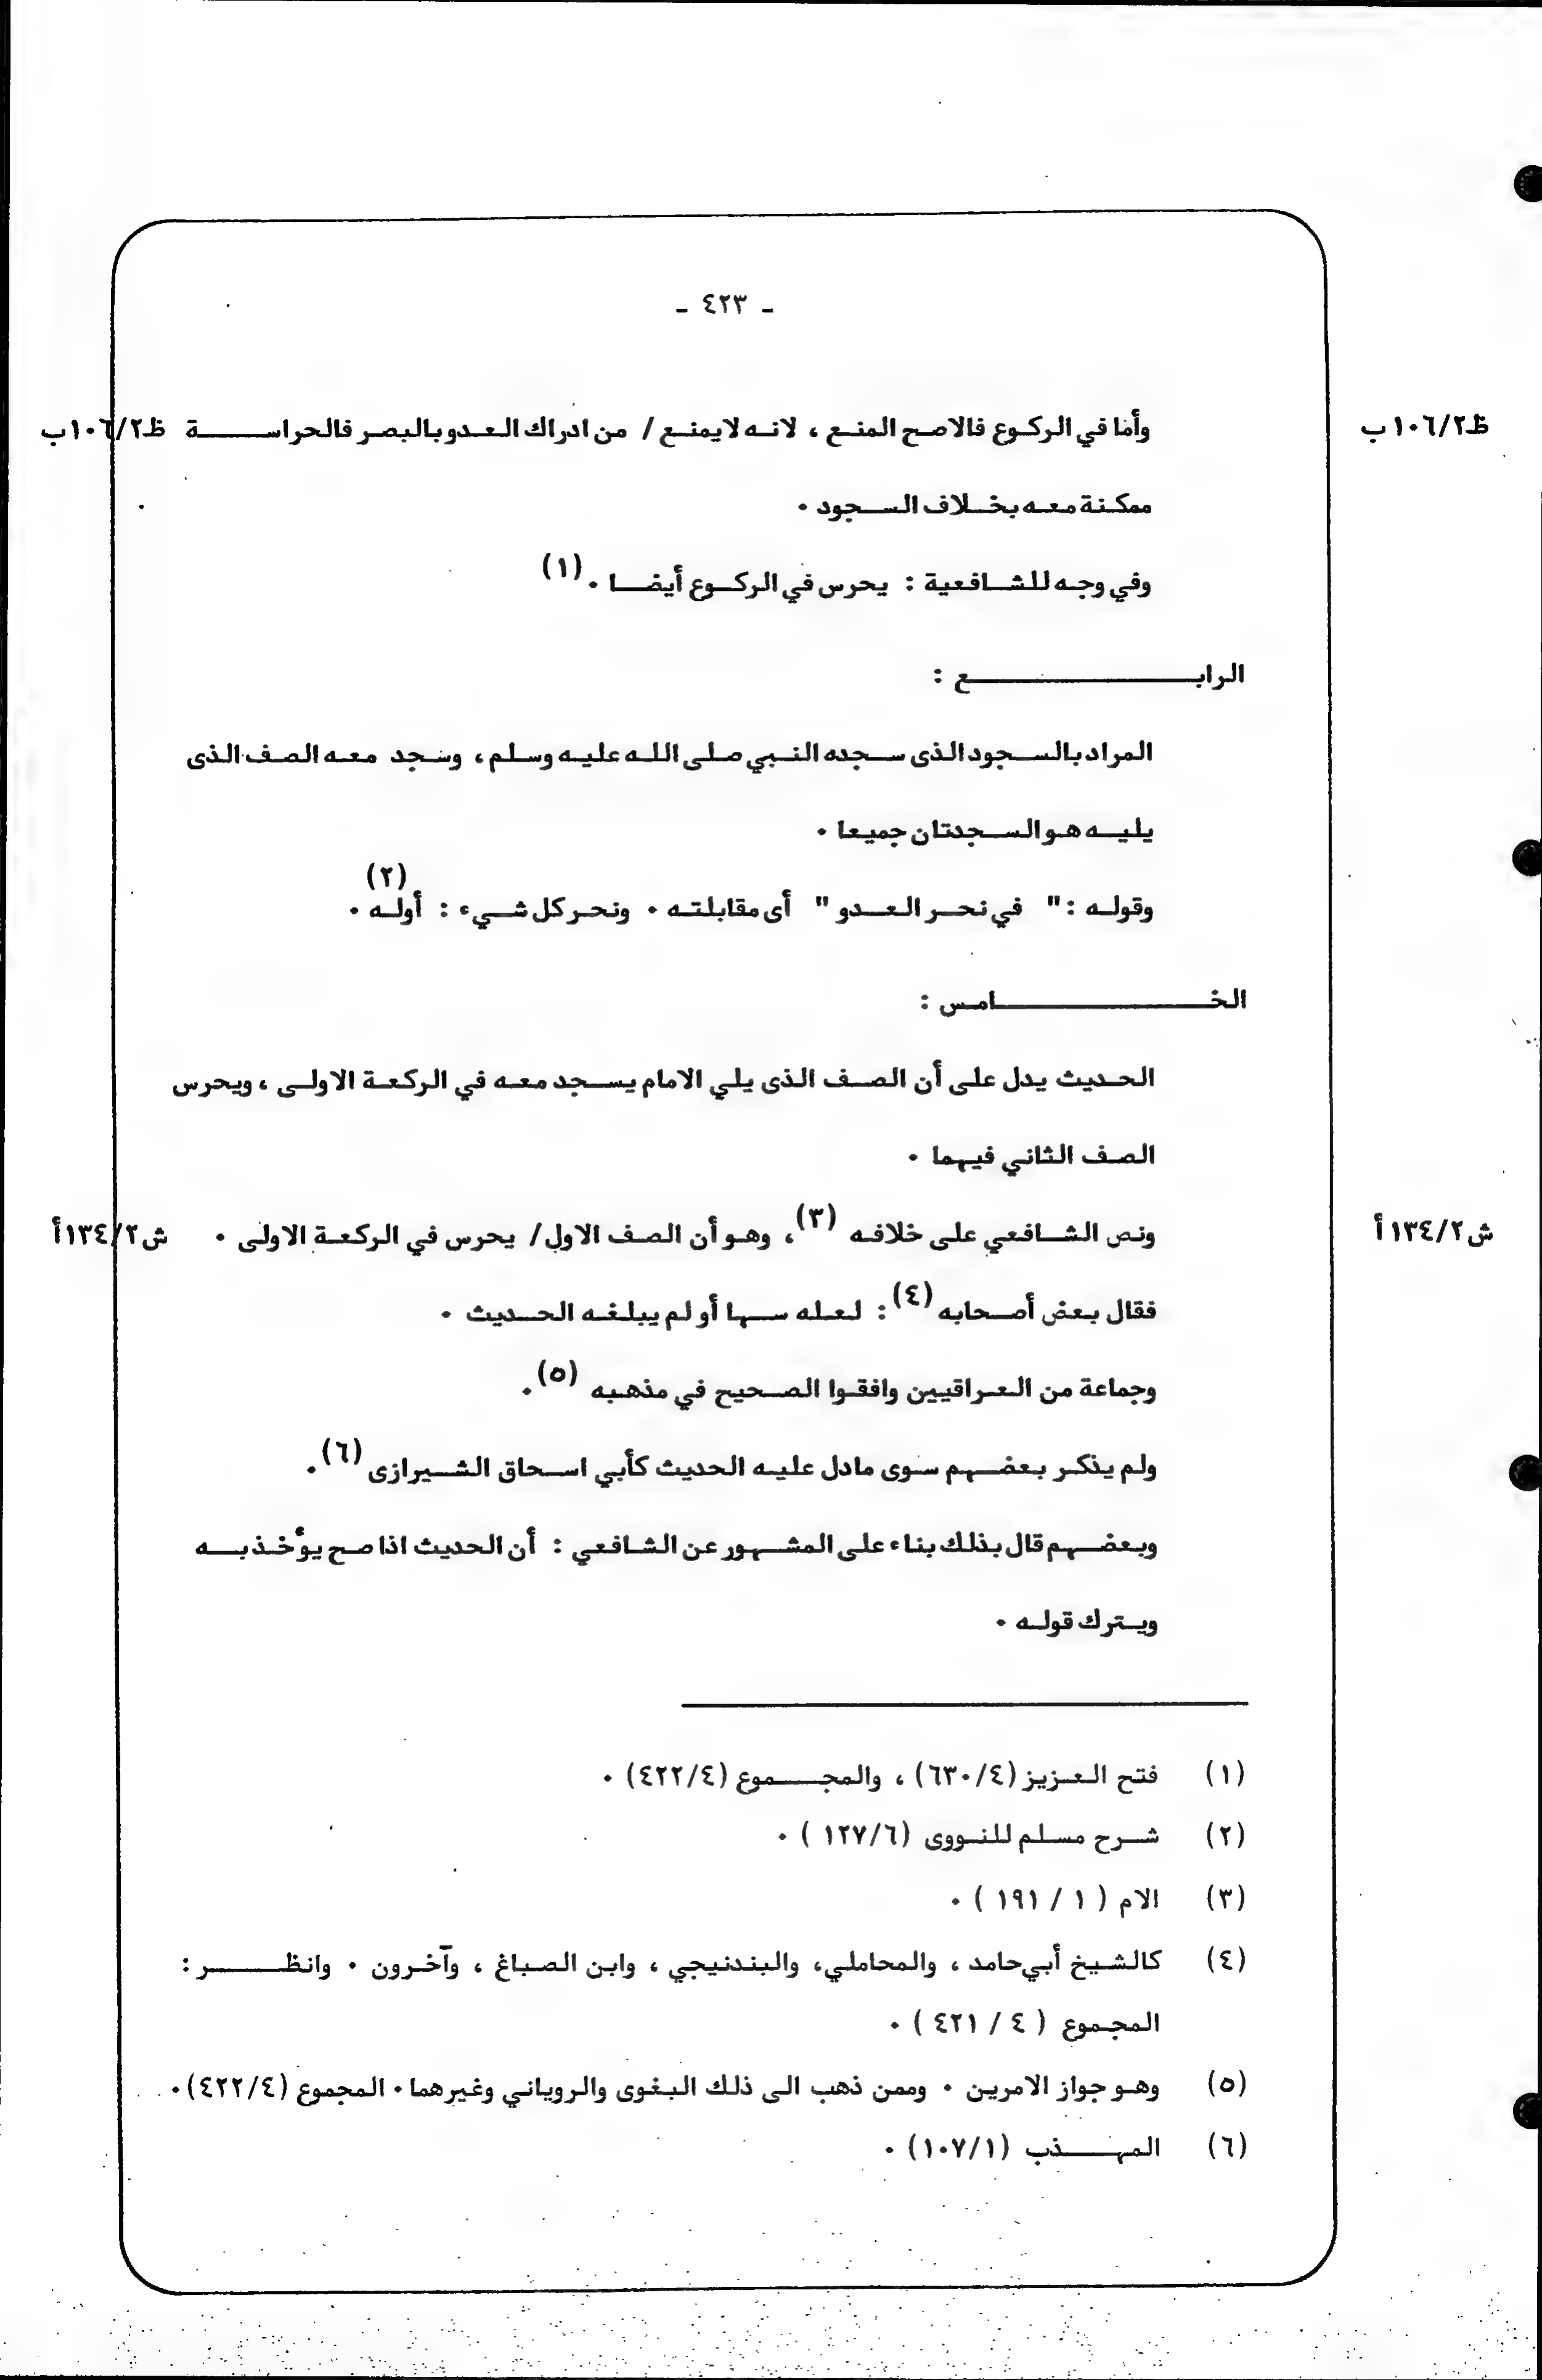 - ٤٢٣ -
وأما في الركوع فالاصح المنع ، لانه لايمنع / من ادراك العدو بالبصر فالحراسة ظ١٠٦/٢ب
ظ١٠٦/٢ب
ممكنة معه بخلاف السجود ٠
وفي وجه للشافعية : يحرس في الركوع أيضا ٠ (١)
الرابع :
المراد بالسجود الذى سجده النبي صلى الله عليه وسلم ، وسجد معه الصف الذى
يليه هو السجدتان جميعا ٠
وقوله : " في نحر العدو " أى مقابلته ٠ ونحر كل شيء : أوله (٢) ٠
الخامس :
الحديث يدل على أن الصف الذى يلي الامام يسجد معه في الركعة الاولى ، ويحرس
الصف الثاني فيهما ٠
ونص الشافعي على خلافه (٣) ، وهو أن الصف الاول / يحرس في الركعة الاولى ٠ ش١٣٤/٢أ
ش١٣٤/٢أ
فقال بعض أصحابه (٤) : لعله سها أو لم يبلغه الحديث ٠
وجماعة من العراقيين وافقوا الصحيح في مذهبه (٥) ٠
ولم يذكر بعضهم سوى مادل عليه الحديث كأبي اسحاق الشيرازى (٦) ٠
وبعضهم قال بذلك بناء على المشهور عن الشافعي : أن الحديث اذا صح يؤخذ به
ويترك قوله ٠
(١) فتح العزيز (٦٣٠/٤) ، والمجموع (٤٢٢/٤) ٠
(٢) شرح مسلم للنووى (١٢٧/٦ ) ٠
(٣) الام ( ١ / ١٩١ ) ٠
(٤) كالشيخ أبي حامد ، والمحاملي، والبندنيجي ، وابن الصباغ ، وآخرون ٠ وانظر :
المجموع ( ٤ / ٤٢١ ) ٠
(٥) وهو جواز الامرين ٠ وممن ذهب الى ذلك البغوى والروياني وغيرهما ٠ المجموع (٤٢٢/٤) ٠
(٦) المهذب (١٠٧/١) ٠